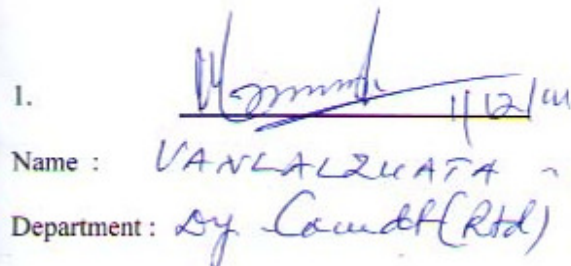 1.
1/12/
Name : VANLALZUATA
Department : Dy Comdt (Rtd)